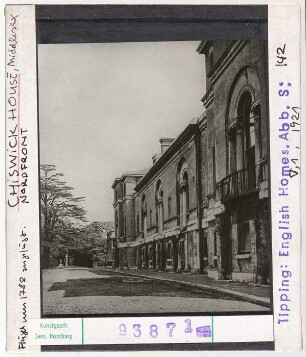 CHISWICK HOUSE, Middlesex
NORDFRONT
Flügel um 1788 zugefügt.
Tipping: English Homes. Abb. S: 142
V,1, 1921
Kunstgesch.
Sem. Hamburg
93871